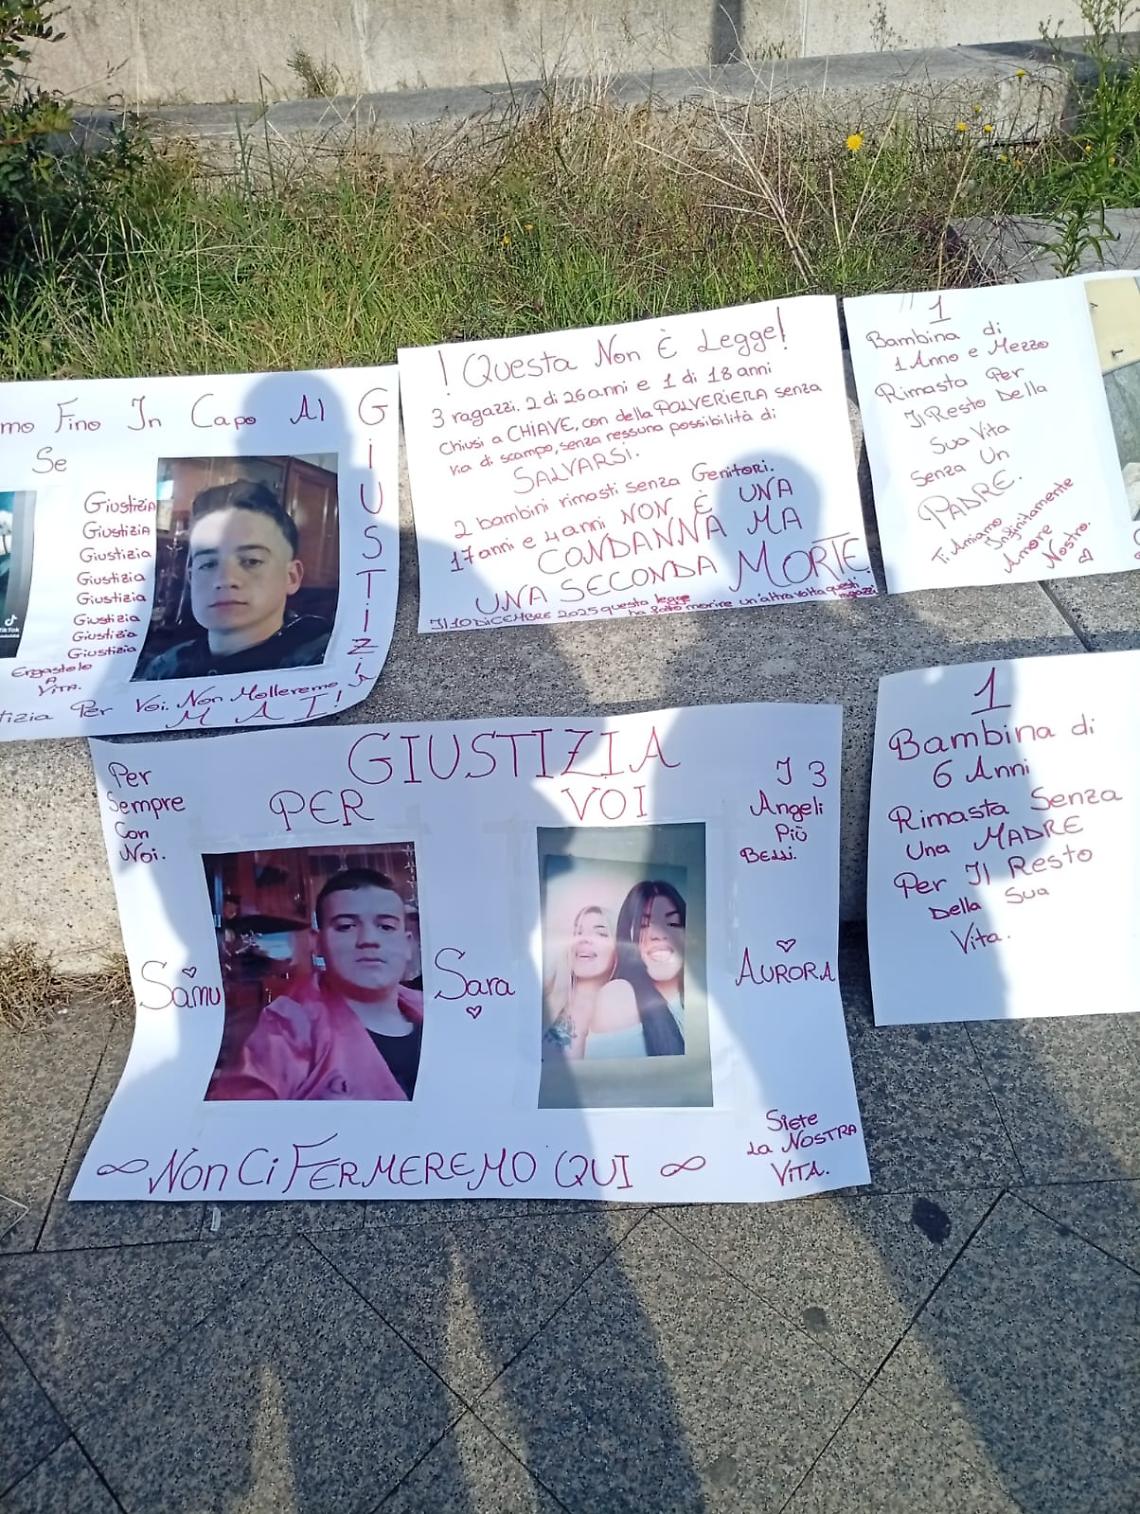 mo Fino In Capo Al
Se
Giustizia
Giustizia
Giustizia
Giustizia
Giustizia
Giustizia
Giustizia
Giustizia
Ergastolo
A
Vita.
GIUSTIZIA
tizia Per Voi. Non Molleremo
MAI!
TikTok
! Questa Non È Legge!
3 ragazzi. 2 di 26 anni e 1 di 18 anni
Chiusi a CHIAVE, con della POLVERIERA senza
via di scampo, senza nessuna possibilità di
SALVARSI.
2 bambini rimasti senza Genitori.
17 anni e 4 anni NON È UNA
CONDANNA MA
UNA SECONDA MORTE
Il 10 DICEMBRE 2025 questa legge
ha fatto morire un'altra volta questi
ragazzi.
1
Bambina di
1 Anno e Mezzo
Rimasta Per
Il Resto Della
Sua Vita
Senza Un
PADRE.
Ti Amiamo
Infinitamente
Amore
Nostro.
GIUSTIZIA
PER VOI
Per
Sempre
Con
Noi.
I 3
Angeli
Più
Belli.
Samu
Sara
AURORA
∞ NON CI FERMEREMO QUI ∞
Siete
La NOSTRA
VITA.
1
Bambina di
6 Anni
Rimasta Senza
Una MADRE
Per Il Resto
Della Sua
Vita.